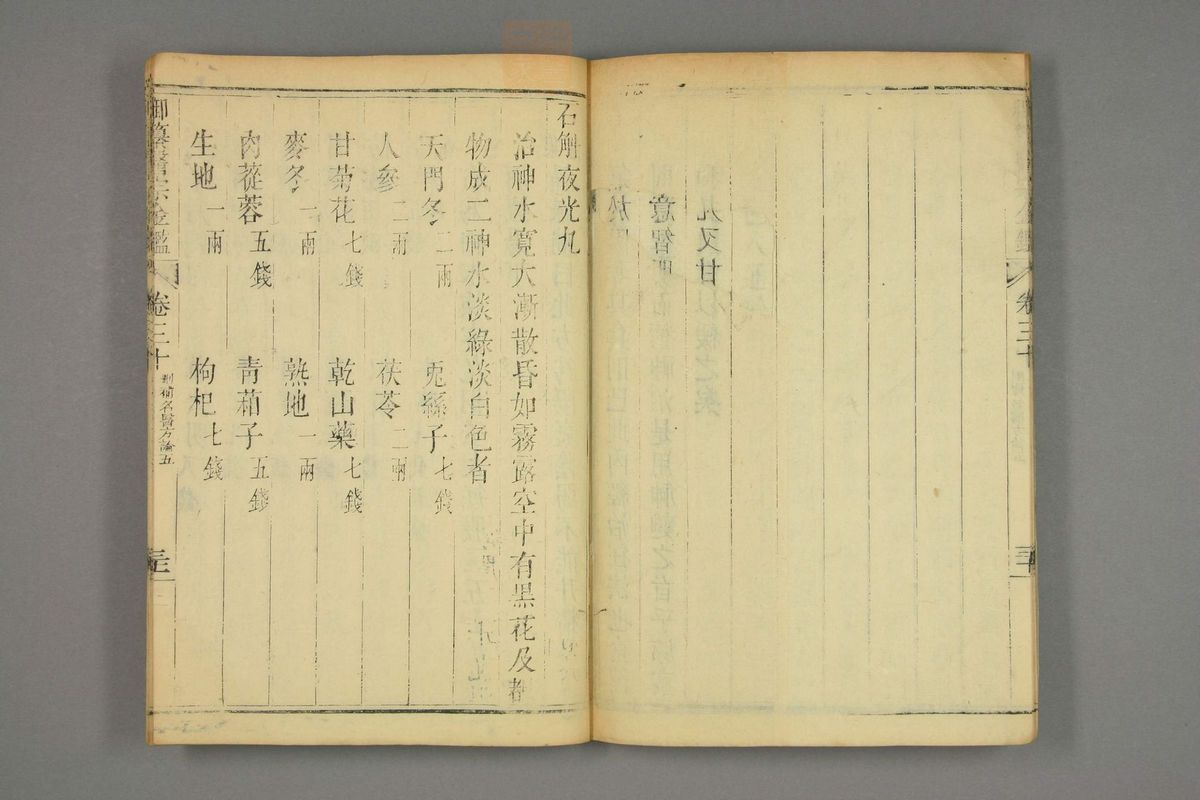 卷三十
意智
丸又甘
石斛夜光丸
治神水寬大漸散昏如霧露空中有黑花及覩
物成二神水淡綠淡白色者
天門冬二兩 兎絲子七錢
人參二兩 茯苓二兩
甘菊花七錢 乾山藥七錢
麥冬一兩 熟地一兩
肉蓯蓉五錢 青葙子五錢
生地一兩 枸杞七錢
御纂醫宗金鑑 卷三十 刪補名醫方論五